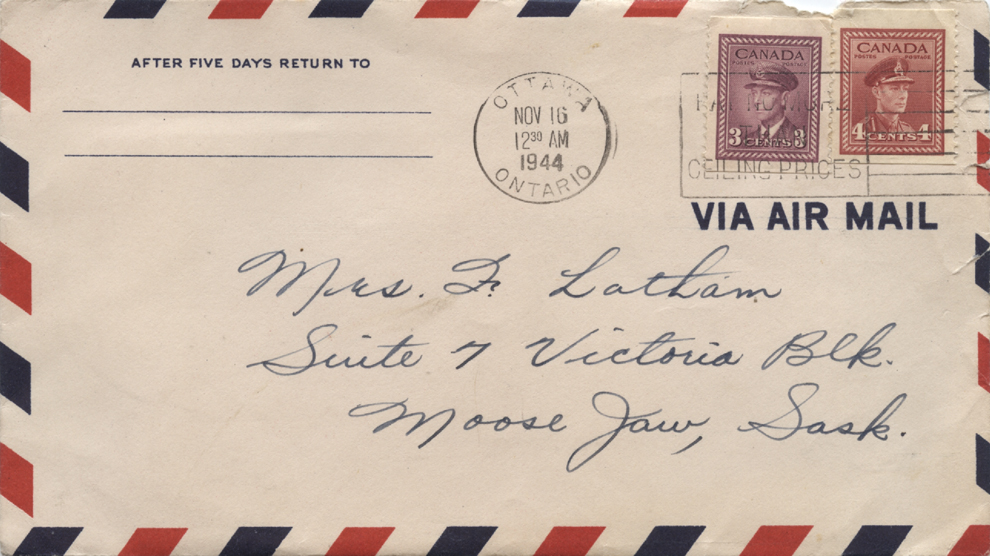 AFTER FIVE DAYS RETURN TO
OTTAWA
NOV 16
12³⁰ AM
1944
ONTARIO
PAY NO MORE
THAN
CEILING PRICES
CANADA
POSTES POSTAGE
3 CENTS 3
CANADA
POSTES POSTAGE
4 CENTS 4
VIA AIR MAIL
Mrs. F. Latham
Suite 7 Victoria Blk.
Moose Jaw, Sask.